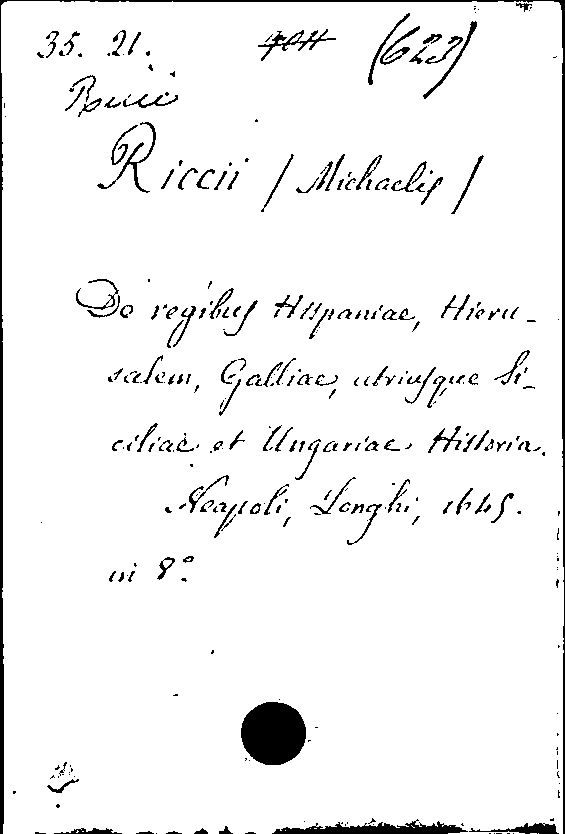 35. 21. (623)
Riccii / Michaelis /
De regibus Hispaniae, Hieru-
salem, Galliae, utriusque Si-
ciliae et Ungariae Historia.
Neapoli, Longhi, 1645.
in 8º